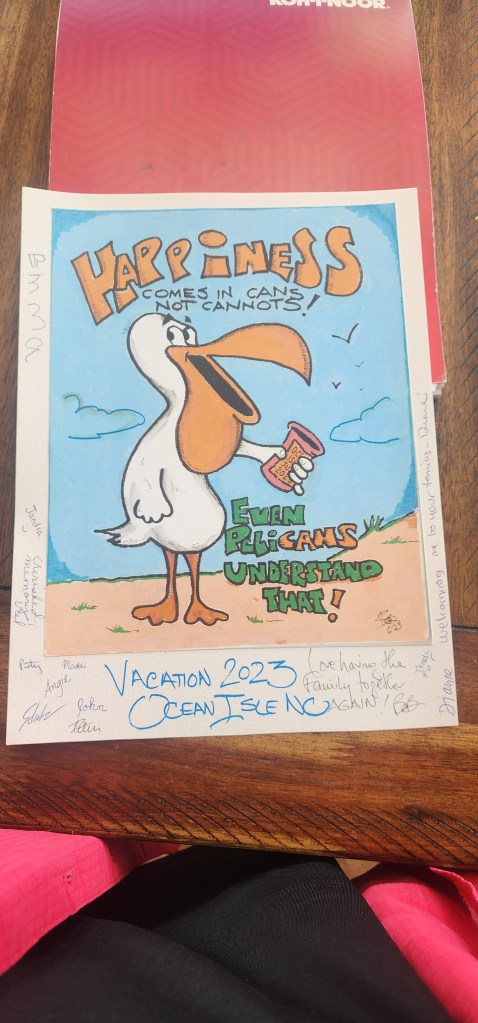 KOH-I-NOOR
HAPPINESS
COMES IN CANS
NOT CANNOTS!
EVEN
PELICANS
UNDERSTAND
THAT!
VACATION 2023
OCEAN ISLE NC
Love having the
Family together
AGAIN!
Emma
Sandra
Cherished
memories!
Patsy
Angie
John
welcoming me to your family - Diane!